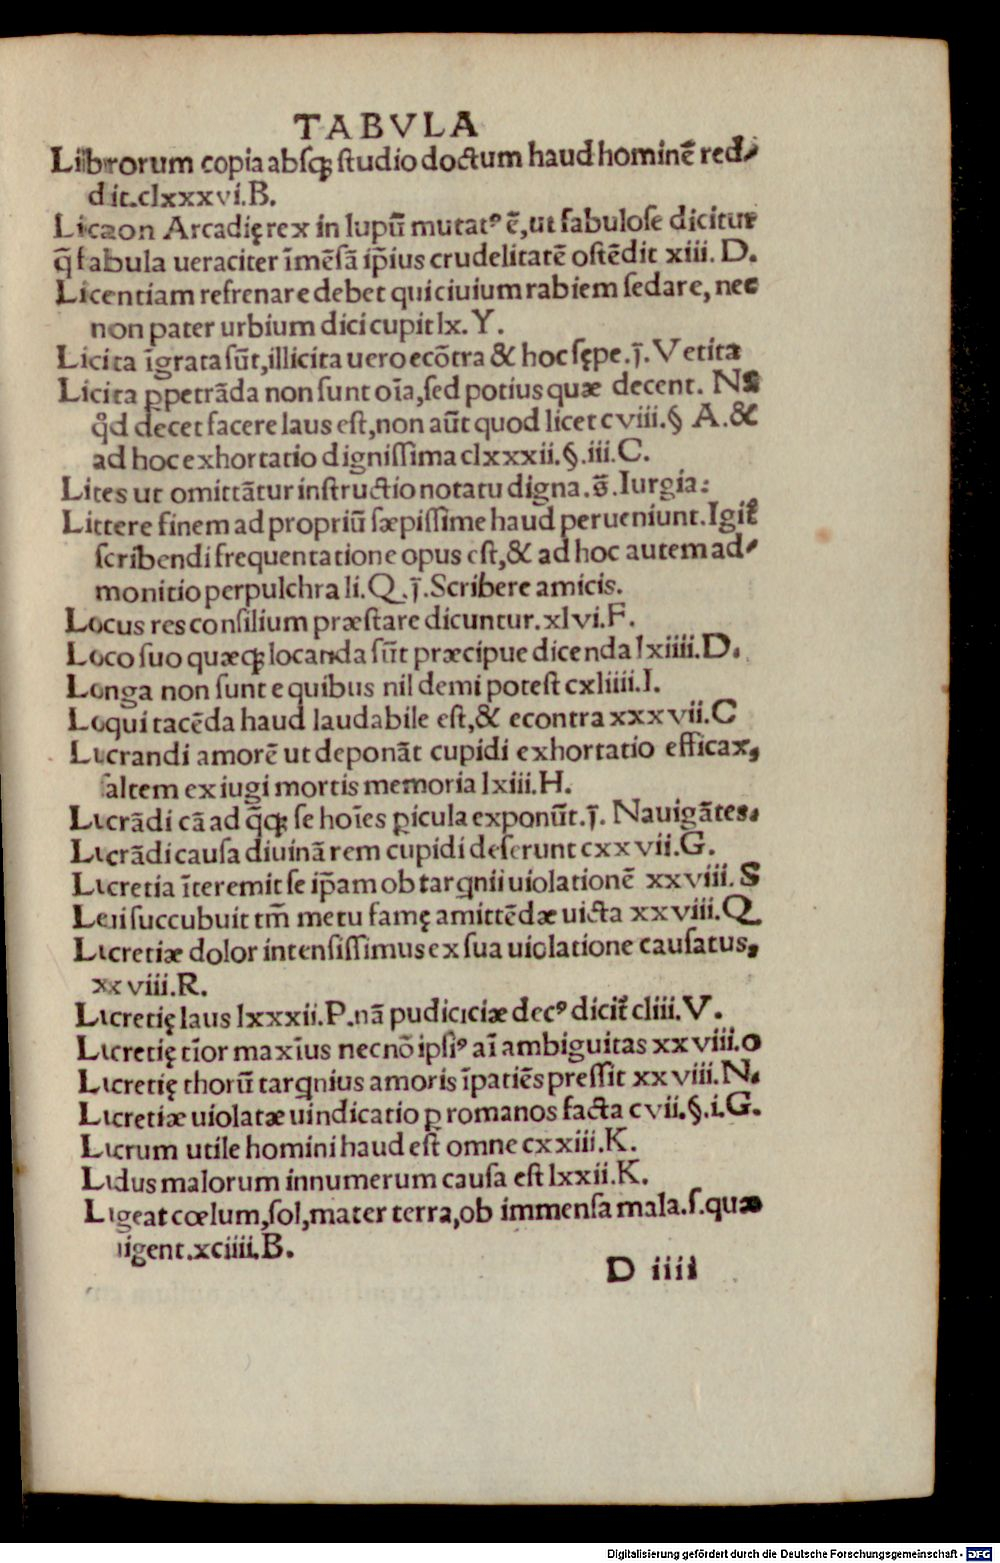 TABVLA
Librorum copia absq; ſtudio doctum haud hominē red⸗
dit.clxxxvi.B.
Licaon Arcadię rex in lupū mutatꝰ ē,ut fabuloſe dicitur
q̄ fabula ueraciter īmēſā ip̄ius crudelitatē oſtēdit xiii. D.
Licentiam refrenare debet qui ciuium rabiem ſedare, nec
non pater urbium dici cupit lx. Y.
Licita īgrata ſūt,illicita uero ecōtra & hoc ſępe.j̄. Vetita
Licita ꝑpetrāda non ſunt oīa,ſed potius quæ decent. Nā
qd̉ decet facere laus eſt,non aūt quod licet cviii.§ A.&
ad hoc exhortatio digniſſima clxxxii.§.iii.C.
Lites ut omittātur inſtructio notatu digna.s̄. Iurgia:
Littere finem ad propriū ſæpiſſime haud perueniunt.Igit̉
ſcribendi frequentatione opus eſt,& ad hoc autem ad⸗
monitio perpulchra li.Q.j̄.Scribere amicis.
Locus res conſilium præſtare dicuntur.xlvi.F.
Loco ſuo quæq; locanda ſūt præcipue dicenda lxiiii.D.
Longa non ſunt e quibus nil demi poteſt cxliiii.I.
Loqui tacēda haud laudabile eſt,& econtra xxxvii.C
Lucrandi amorē ut deponāt cupidi exhortatio efficax,
ſaltem ex iugi mortis memoria lxiii.H.
Lucrādi cā ad q̄q; ſe hoīes ꝑicula exponūt.j̄. Nauigātes.
Lucrādi cauſa diuinā rem cupidi deſerunt cxxvii.G.
Lucretia īteremit ſe ip̄am ob tarqnii uiolationē xxviii. S
Leui ſuccubuit tm̄ metu famę amittēdæ uicta xxviii.Q
Lucretiæ dolor intenſiſſimus ex ſua uiolatione cauſatus,
xxviii.R.
Lucretię laus lxxxii.P.nā pudiciciæ decꝰ dicit̉ cliii.V.
Lucretię tīor maxīus necnō ipſiꝰ aī ambiguitas xxviii.O
Lucretię thorū tarqnius amoris īpatiēs preſſit xxviii.N.
Lucretiæ uiolatæ uindicatio ꝑ romanos facta cvii.§.i.G.
Lucrum utile homini haud eſt omne cxxiii.K.
Ludus malorum innumerum cauſa eſt lxxii.K.
Lugeat cœlum,ſol,mater terra,ob immenſa mala.ſ.quæ
uigent.xciiii.B.
D iiii
Digitalisierung gefördert durch die Deutsche Forschungsgemeinschaft - DFG